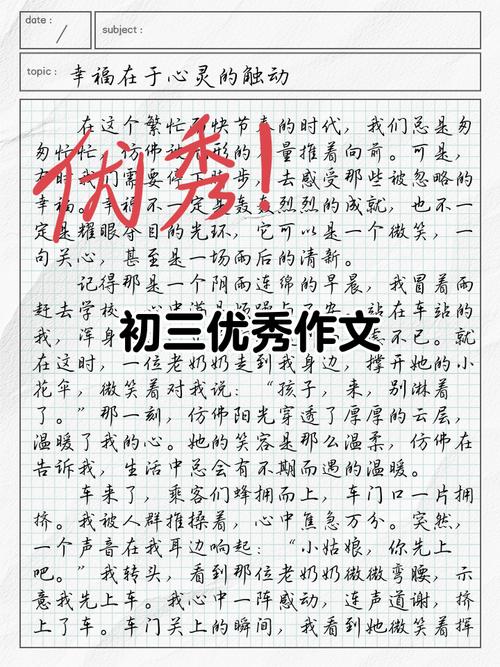 date :
subject :
topic : 幸福在于心灵的触动
在这个繁忙 快节奏的时代，我们总是匆
匆忙忙，仿佛被 形的 量推着向前。可是，
有时我们需要停下脚步，去感受那些被忽略的
幸福。幸福不一定是轰轰烈烈的成就，也不一
定是耀眼夺目的光环，它可以是一个微笑，一
句关心，甚至是一场雨后的清新。
优秀！
记得那是一个阴雨连绵的早晨，我冒着雨
赶去学校，心中满是 站在车站的
我，浑身 不已。就
初三优秀作文
在这时，一位老奶奶走到我身边，撑开她的小
花伞，微笑着对我说：“孩子，来，别淋着
了。”那一刻，仿佛阳光穿透了厚厚的云层，
温暖了我的心。她的笑容是那么温柔，仿佛在
告诉我，生活中总会有不期而遇的温暖。
车来了，乘客们蜂拥而上，车门口一片拥
挤。我被人群推搡着，心中焦急万分。突然，
一个声音在我耳边响起：“小姑娘，你先上
吧。”我转头，看到那位老奶奶微微弯腰，示
意我先上车。我心中一阵感动，连声道谢，挤
上了车。车门关上的瞬间，我看到她微笑着挥